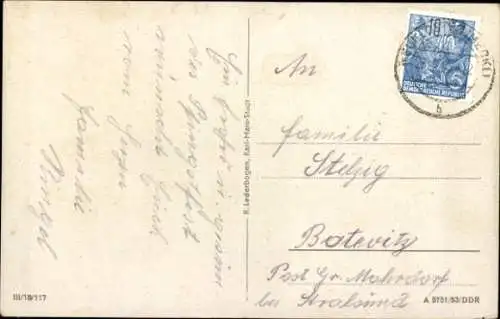 Ein frohes u. warmes
Pfingstfest
wünscht Euch
von Herzen
Familie
An
Familie
Stelzig
Batevitz
Post Gr. Mohrdorf
bei Stralsund
R. Lederbogen, Karl-Marx-Stadt
III/18/117
A 5751/53/DDR
10
DEUTSCHE
DEMOKRATISCHE REPUBLIK
b